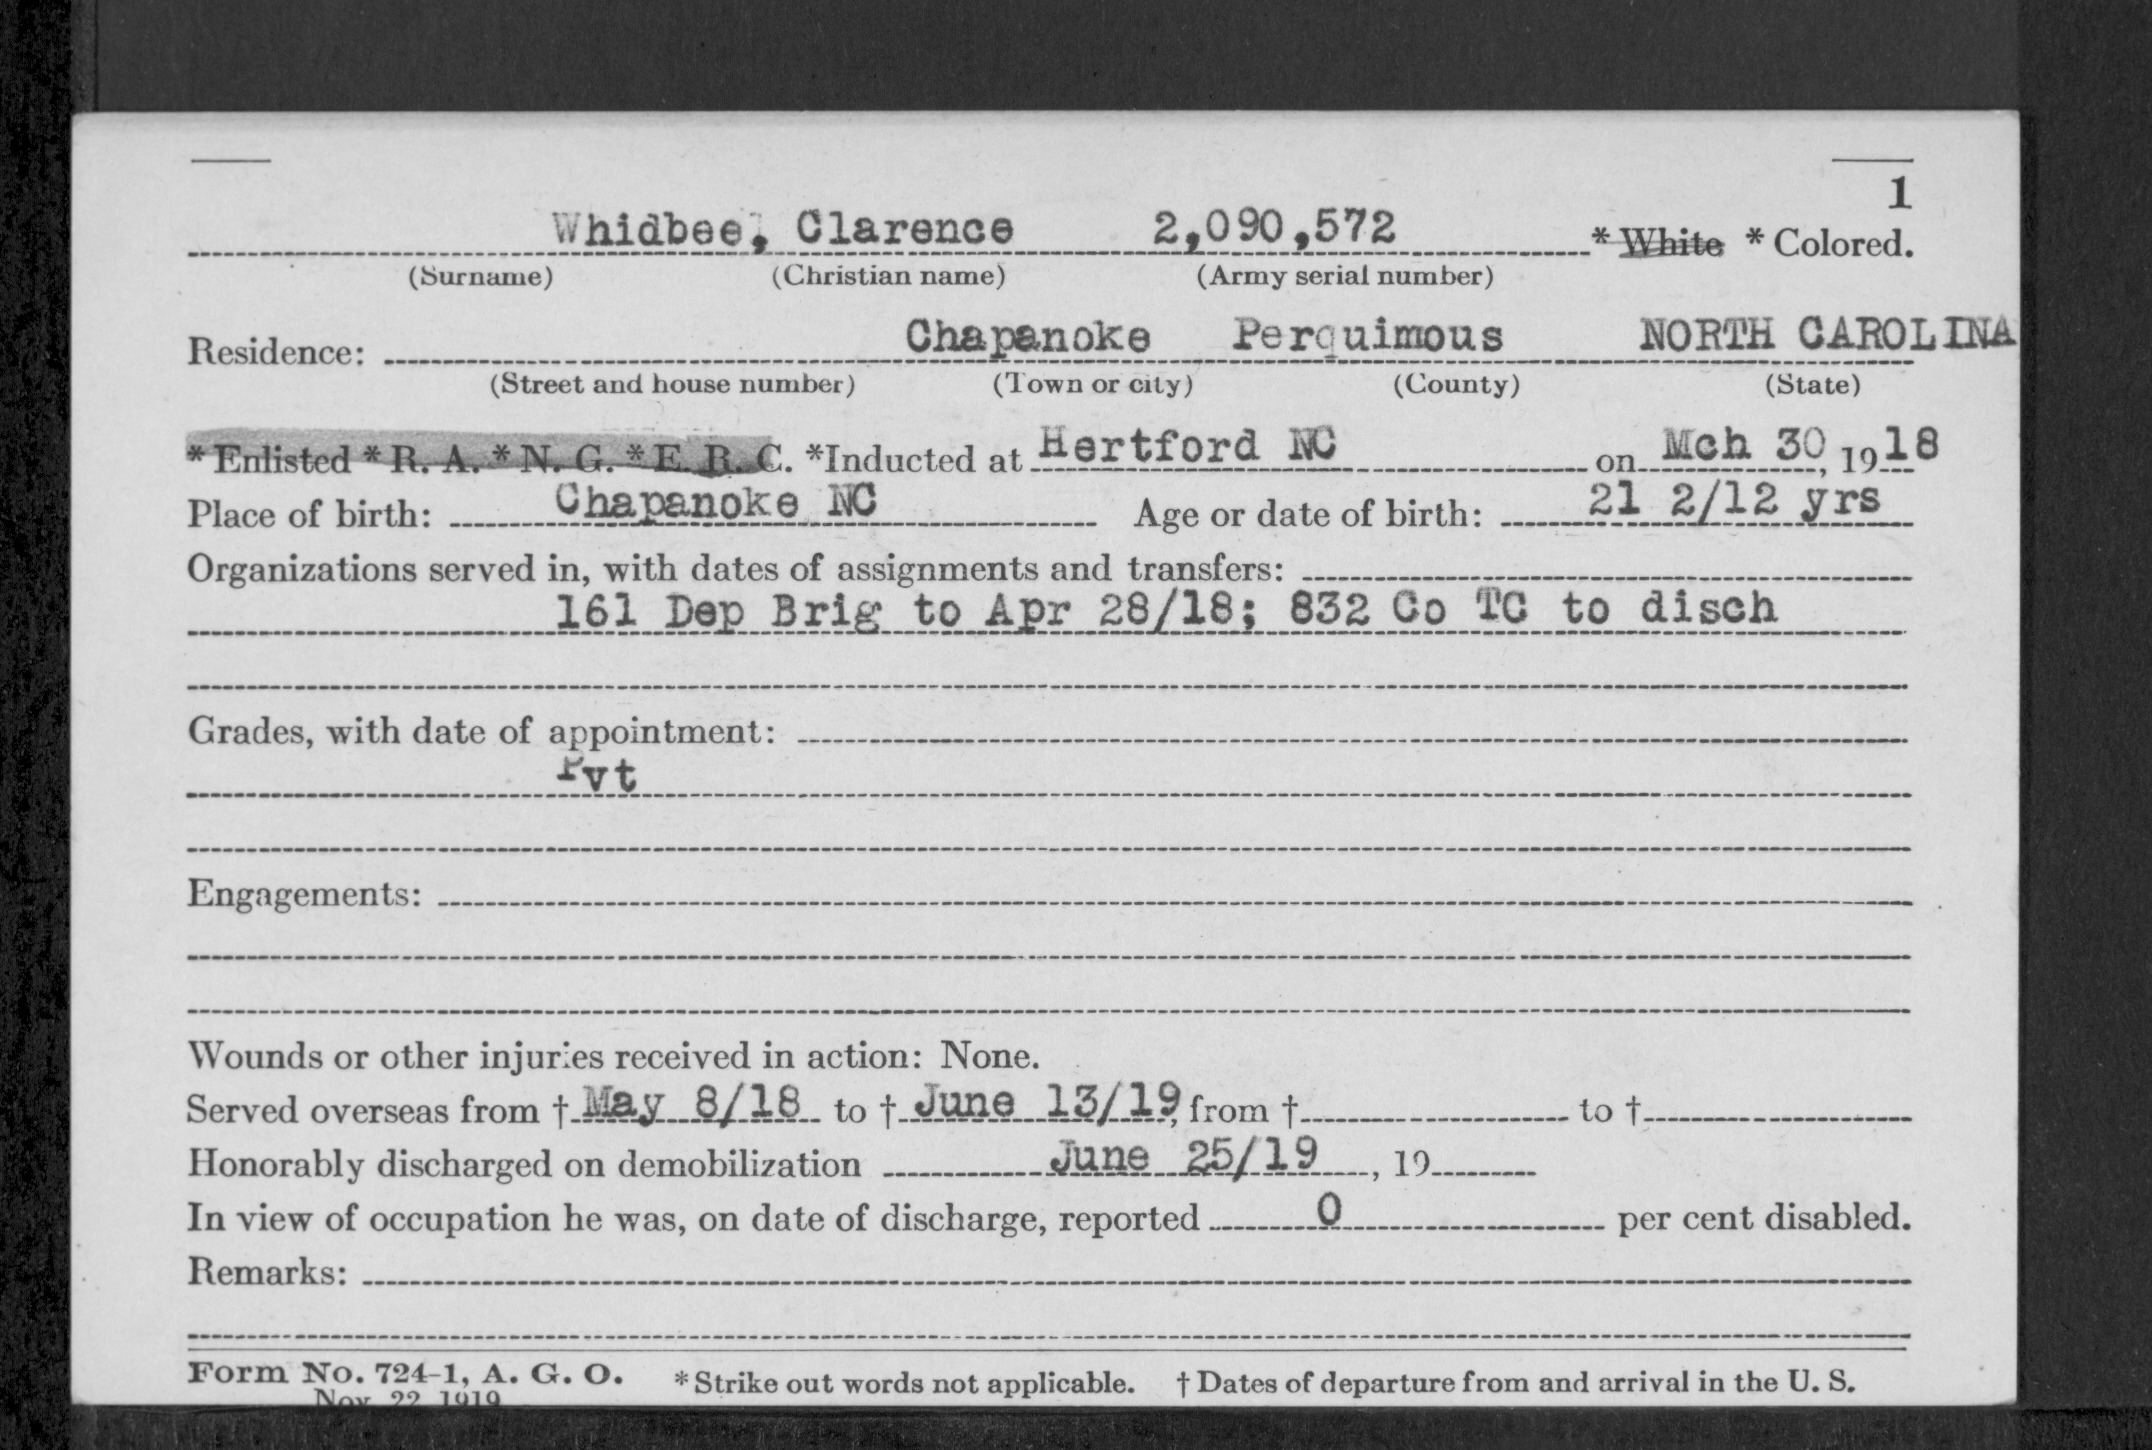 1
Whidbee, Clarence 2,090,572 * White * Colored.
(Surname) (Christian name) (Army serial number)
Residence: Chapanoke Perquimous NORTH CAROLINA
(Street and house number) (Town or city) (County) (State)
* Enlisted * R. A. * N. G. * E. R. C. *Inducted at Hertford NC on Mch 30, 1918
Place of birth: Chapanoke NC Age or date of birth: 21 2/12 yrs
Organizations served in, with dates of assignments and transfers:
161 Dep Brig to Apr 28/18; 832 Co TC to disch
Grades, with date of appointment:
Pvt
Engagements:
Wounds or other injuries received in action: None.
Served overseas from † May 8/18 to † June 13/19, from † to †
Honorably discharged on demobilization June 25/19, 19
In view of occupation he was, on date of discharge, reported 0 per cent disabled.
Remarks:
Form No. 724-1, A. G. O. * Strike out words not applicable. † Dates of departure from and arrival in the U. S.
Nov. 22, 1919